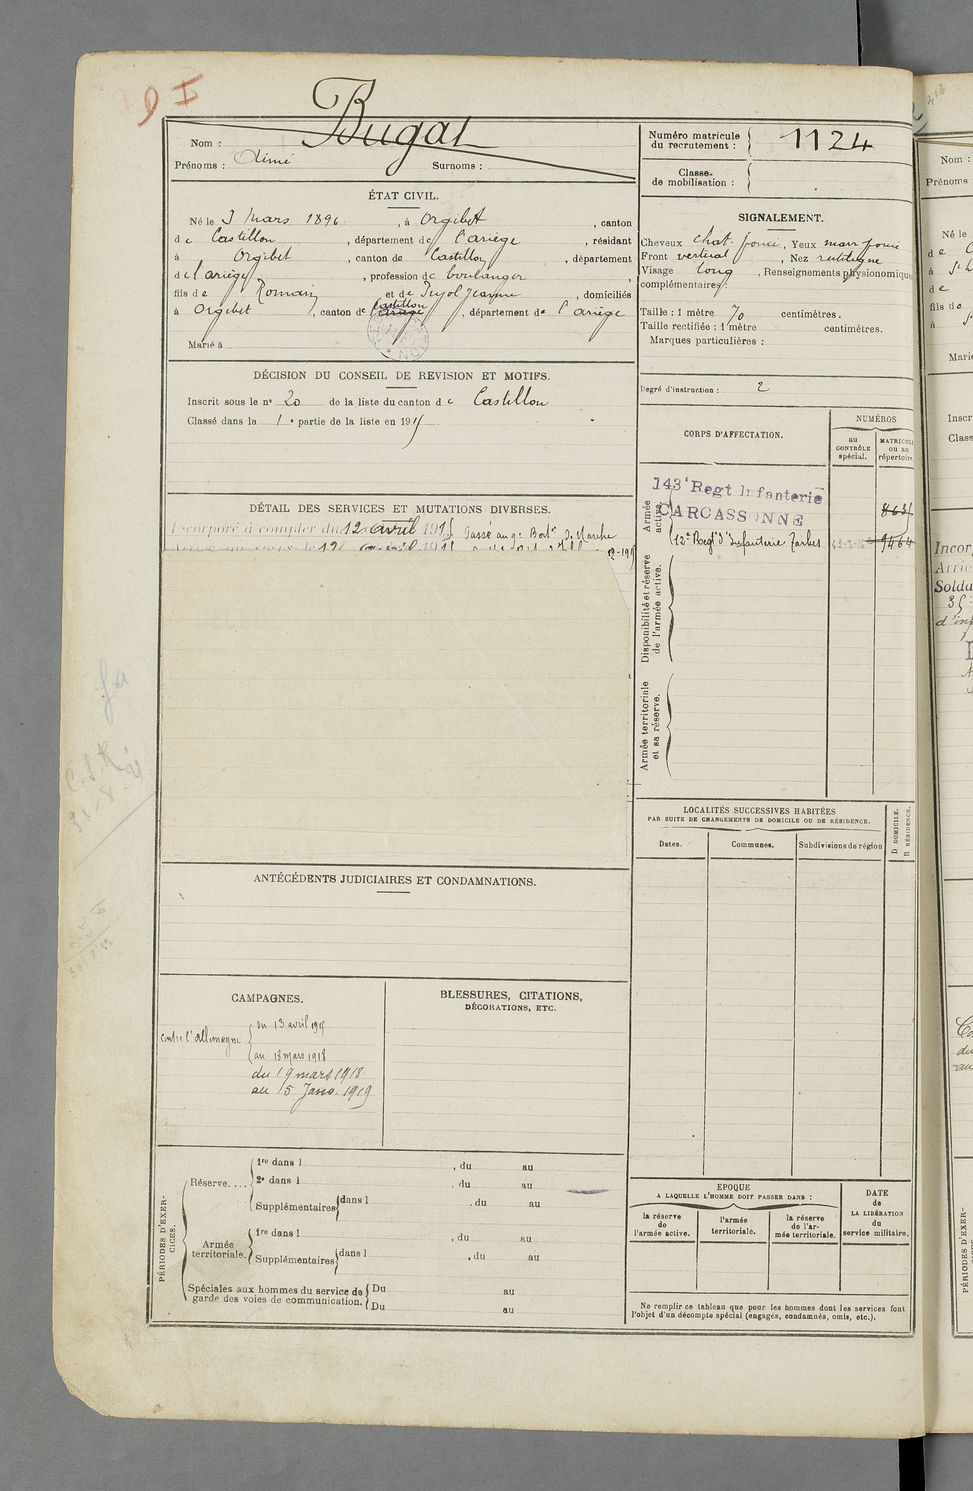 Bugat
Nom :
Prénoms : Aimé Surnoms :
Numéro matricule du recrutement : 1124
Classe de mobilisation :
ÉTAT CIVIL.
Né le 3 Mars 1896, à Orgibet, canton
de Castillon, département de l'ariège, résidant
à Orgibet, canton de Castillon, département
de l'ariège, profession de boulanger
fils de Romain et de Pujol Jeanne, domiciliés
à Orgibet, canton de Castillon, département de l'ariège
Marié à
SIGNALEMENT.
Cheveux chat. foncé, Yeux marr foncé
Front vertical, Nez rectiligne
Visage long, Renseignements physionomiques
complémentaires :
Taille : 1 mètre 70 centimètres.
Taille rectifiée : 1 mètre centimètres.
Marques particulières :
Degré d'instruction : 2
DÉCISION DU CONSEIL DE REVISION ET MOTIFS.
Inscrit sous le n° 20 de la liste du canton de Castillon
Classé dans la 1e partie de la liste en 1915
CORPS D'AFFECTATION.
NUMÉROS
au CONTRÔLE spécial.
MATRICULE ou au répertoire.
Armée active.
143e Regt Infanterie
CARCASSONNE
12e Regt d'Infanterie Tarbes 9464
Disponibilité et réserve de l'armée active.
Armée territoriale et sa réserve.
DÉTAIL DES SERVICES ET MUTATIONS DIVERSES.
Incorporé à compter du 12 avril 1915 Passé au 9e Bon de Marche
ANTÉCÉDENTS JUDICIAIRES ET CONDAMNATIONS.
LOCALITÉS SUCCESSIVES HABITÉES
PAR SUITE DE CHANGEMENTS DE DOMICILE OU DE RÉSIDENCE.
Dates. Communes. Subdivisions de région
D DOMICILE.
R RÉSIDENCE.
CAMPAGNES.
contre l'allemagne
du 13 avril 1915
au 18 mars 1918
du 19 mars 1918
au 15 Janv. 1919
BLESSURES, CITATIONS,
DÉCORATIONS, ETC.
PÉRIODES D'EXERCICES.
Réserve....
1re dans l , du au
2e dans l , du au
Supplémentaires dans l , du au
Armée territoriale.
1re dans l , du au
Supplémentaires dans l , du au
Spéciales aux hommes du service de garde des voies de communication.
Du au
Du au
EPOQUE
A LAQUELLE L'HOMME DOIT PASSER DANS :
la réserve de l'armée active.
l'armée territoriale.
la réserve de l'armée territoriale.
DATE de LA LIBÉRATION du service militaire.
Ne remplir ce tableau que pour les hommes dont les services font
l'objet d'un décompte spécial (engagés, condamnés, omis, etc.).